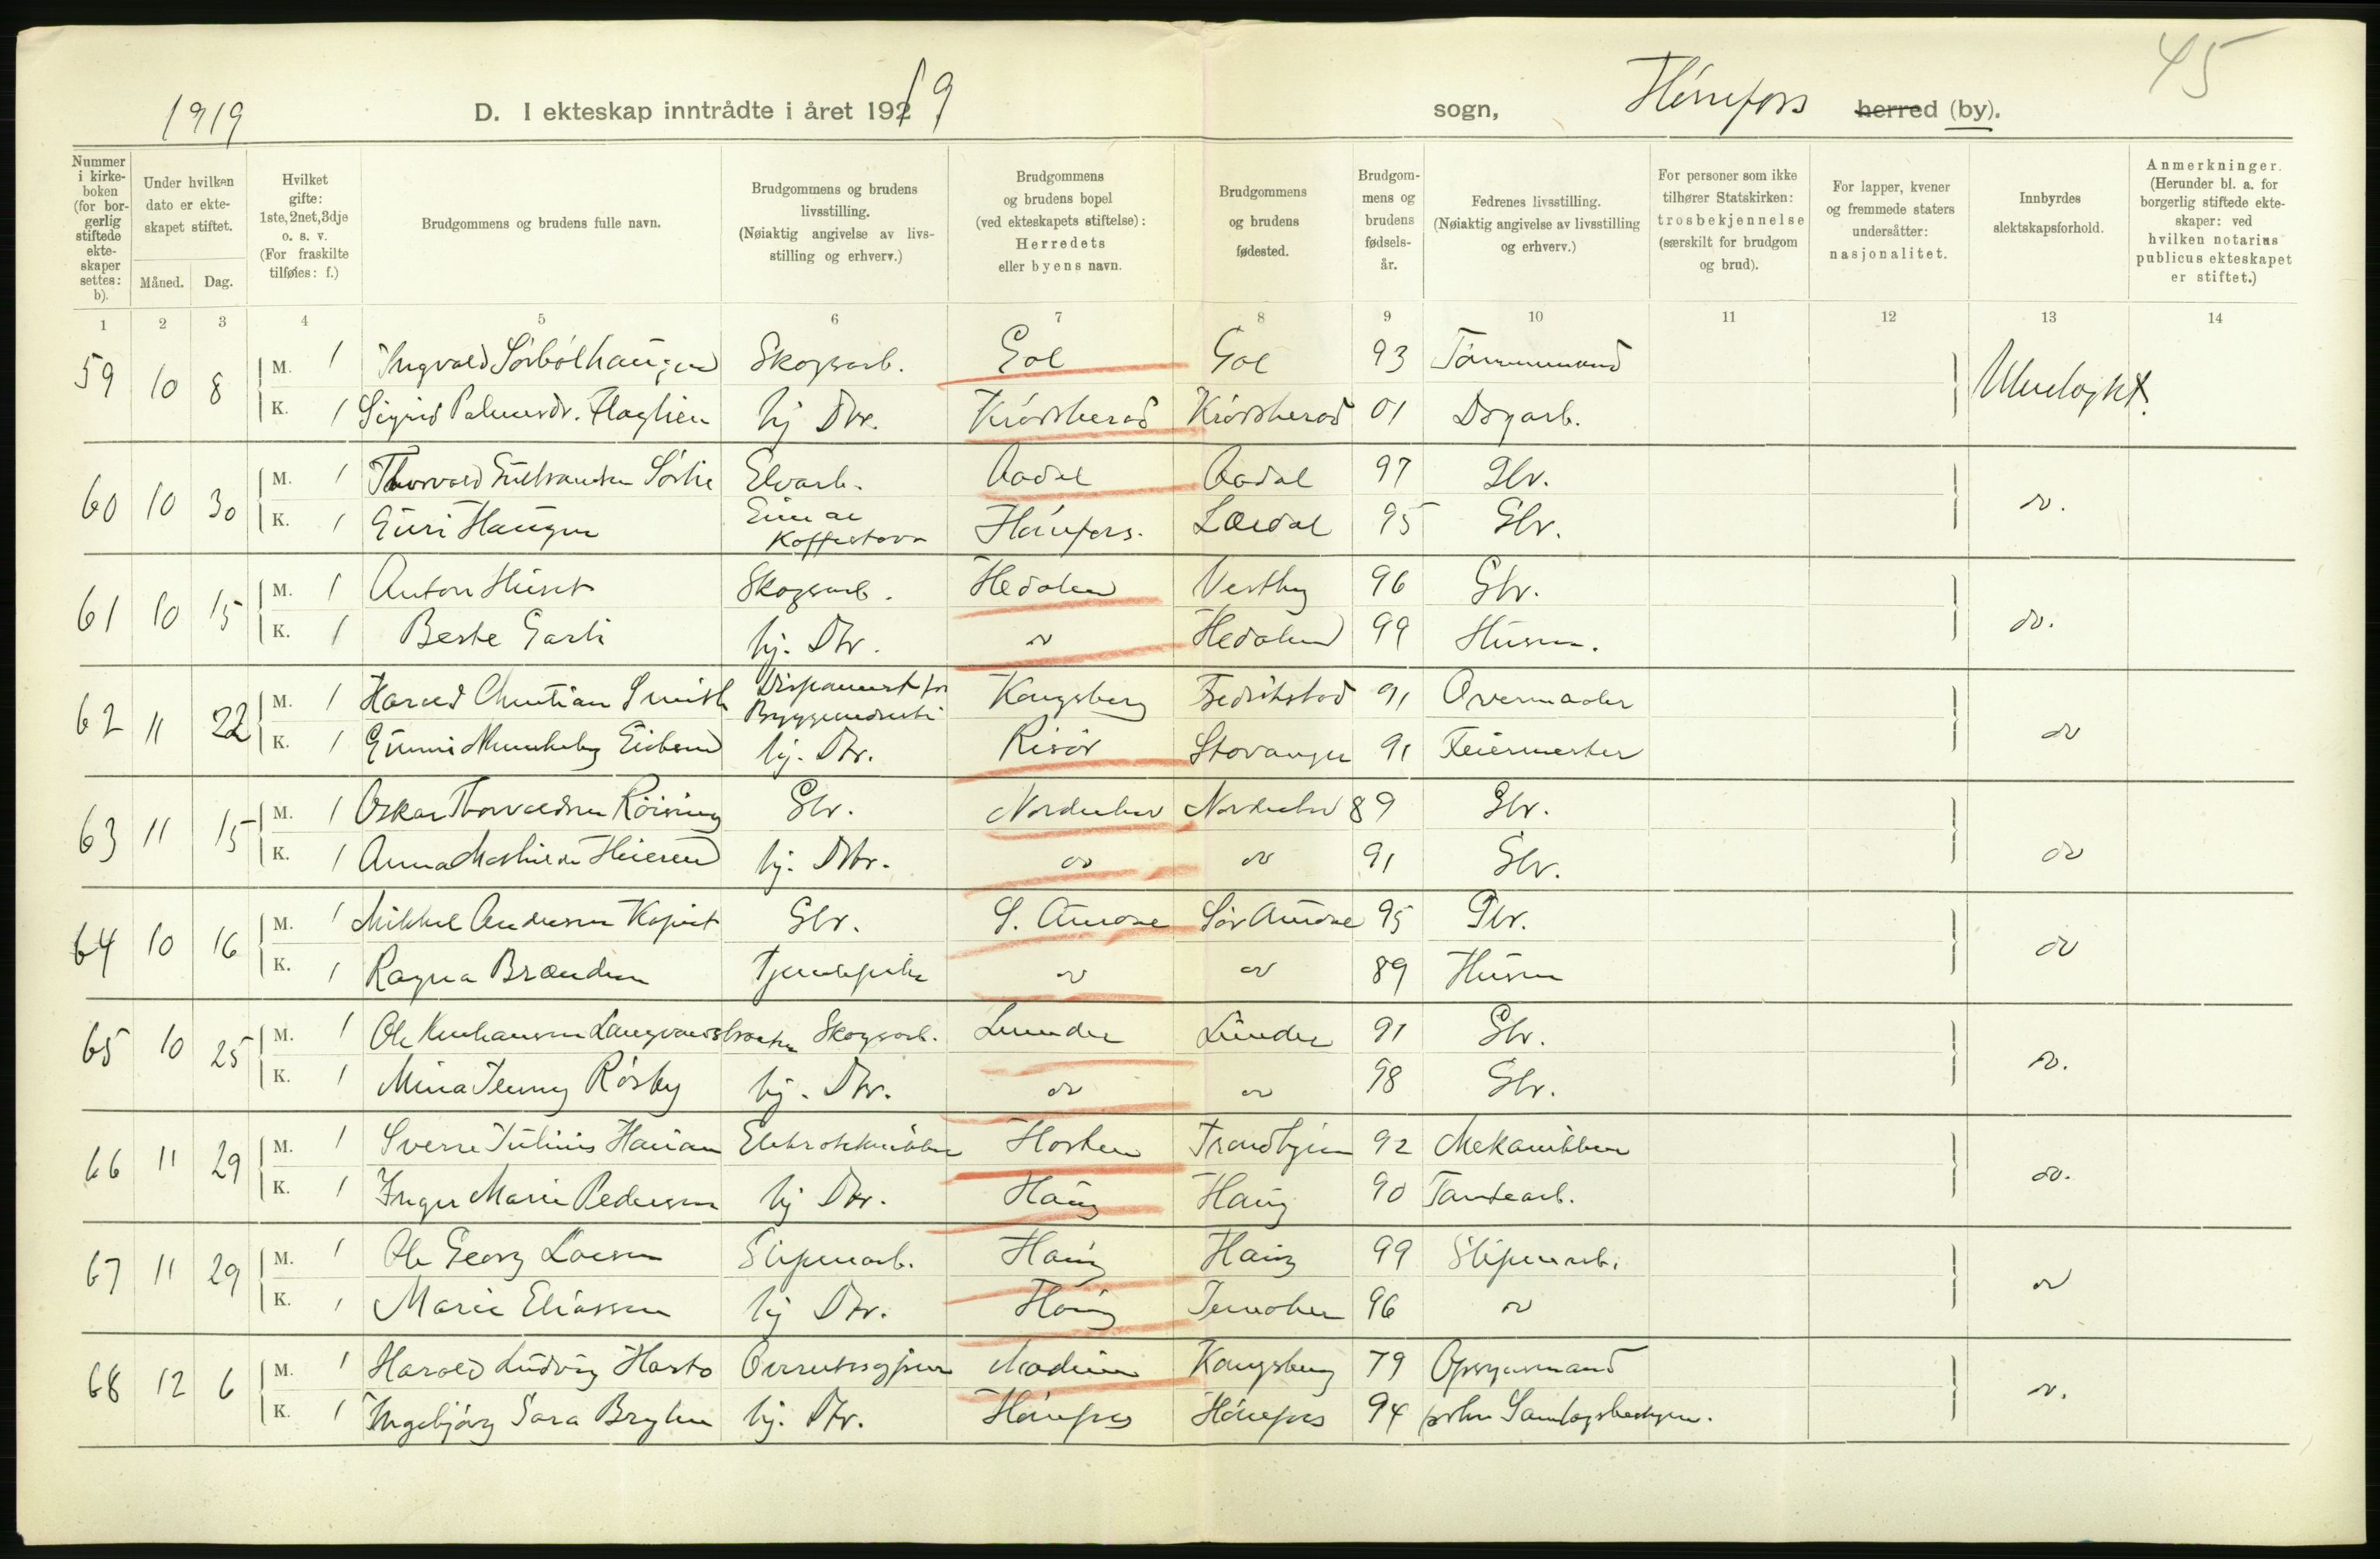 45
1919
D. I ekteskap inntrådte i året 1929
19
sogn,
Hønefoss
herred (by).
Nummer i kirke- boken (for bor- gerlig stiftede ekte- skaper settes: b).
Under hvilken dato er ekte- skapet stiftet.
Måned. Dag.
Hvilket gifte: 1ste, 2net, 3dje o. s. v. (For fraskilte tilføies: f.)
Brudgommens og brudens fulle navn.
Brudgommens og brudens livsstilling. (Nøiaktig angivelse av livs- stilling og erhverv.)
Brudgommens og brudens bopel (ved ekteskapets stiftelse): Herredets eller byens navn.
Brudgommens og brudens fødested.
Brudgom- mens og brudens fødsels- år.
Fedrenes livsstilling. (Nøiaktig angivelse av livsstilling og erhverv.)
For personer som ikke tilhører Statskirken: trosbekjennelse (særskilt for brudgom og brud).
For lapper, kvener og fremmede staters undersåtter: nasjonalitet.
Innbyrdes slektskapsforhold.
Anmerkninger. (Herunder bl. a. for borgerlig stiftede ekte- skaper: ved hvilken notarius publicus ekteskapet er stiftet.)
1 2 3 4 5 6 7 8 9 10 11 12 13 14
59 10 8 M. 1 Ingvald Sørbølhaugen Skogsarb. Gol Gol 93 Tømmermand Ubeslegtet
K. 1 Sigrid Palmersdr. Haglien hj Dtr. Krødsherad Krødsherad 01 Dagarb.
60 10 30 M. 1 Thorvald Gulbrandsen Sørlie Elvarb. Aadal Aadal 97 Gbr. do.
K. 1 Guri Haugen Eier av Kaffestova Hønefoss. Lærdal 95 Gbr.
61 10 15 M. 1 Anton Huset Skogsarb. Hedalen Vestby 96 Gbr. do.
K. 1 Berte Garli hj. Dtr. do Hedalen 99 Husm.
62 11 22 M. 1 Harald Christian Smith Kongsberg Fredrikstad 91 do
K. 1 Gunni Munkeby hj. Dtr. Risør Stavanger 91 Feiermester
63 11 15 M. 1 Oskar Thorvaldsen Røising Gbr. Norderhov Norderhov 89 Gbr. do
K. 1 Anna Mathilde hj. Dtr. do do 91 Gbr.
64 10 16 M. 1 Mikkel Andersen Gbr. S. Aurdal Sør Aurdal 95 Gbr. do
K. 1 Ragna Brænden Tjenestepike do do 89 Husm
65 10 25 M. 1 Ole Skogsarb. Lunder Lunder 91 Gbr. do.
K. 1 Mina Jenny Røsby hj. Dtr. do do 98 Gbr.
66 11 29 M. 1 Sverre Julius Hansen Elektrotekniker Horten Trondhjem 92 Mekaniker do.
K. 1 Inger Marie Pedersen hj Dtr. Haug Haug 90 Tomtearb.
67 11 29 M. 1 Ole Georg Larsen Sliperiarb. Haug Haug 99 Sliperiarb. do
K. 1 Marie Eliassen hj Dtr. Haug Jevnaker 96 do
68 12 6 M. 1 Harald Ludvig Modum Kongsberg 79 Opsynsmand do.
K. 1 Ingebjørg Sara hj. Dtr. Hønefoss Hønefoss 94